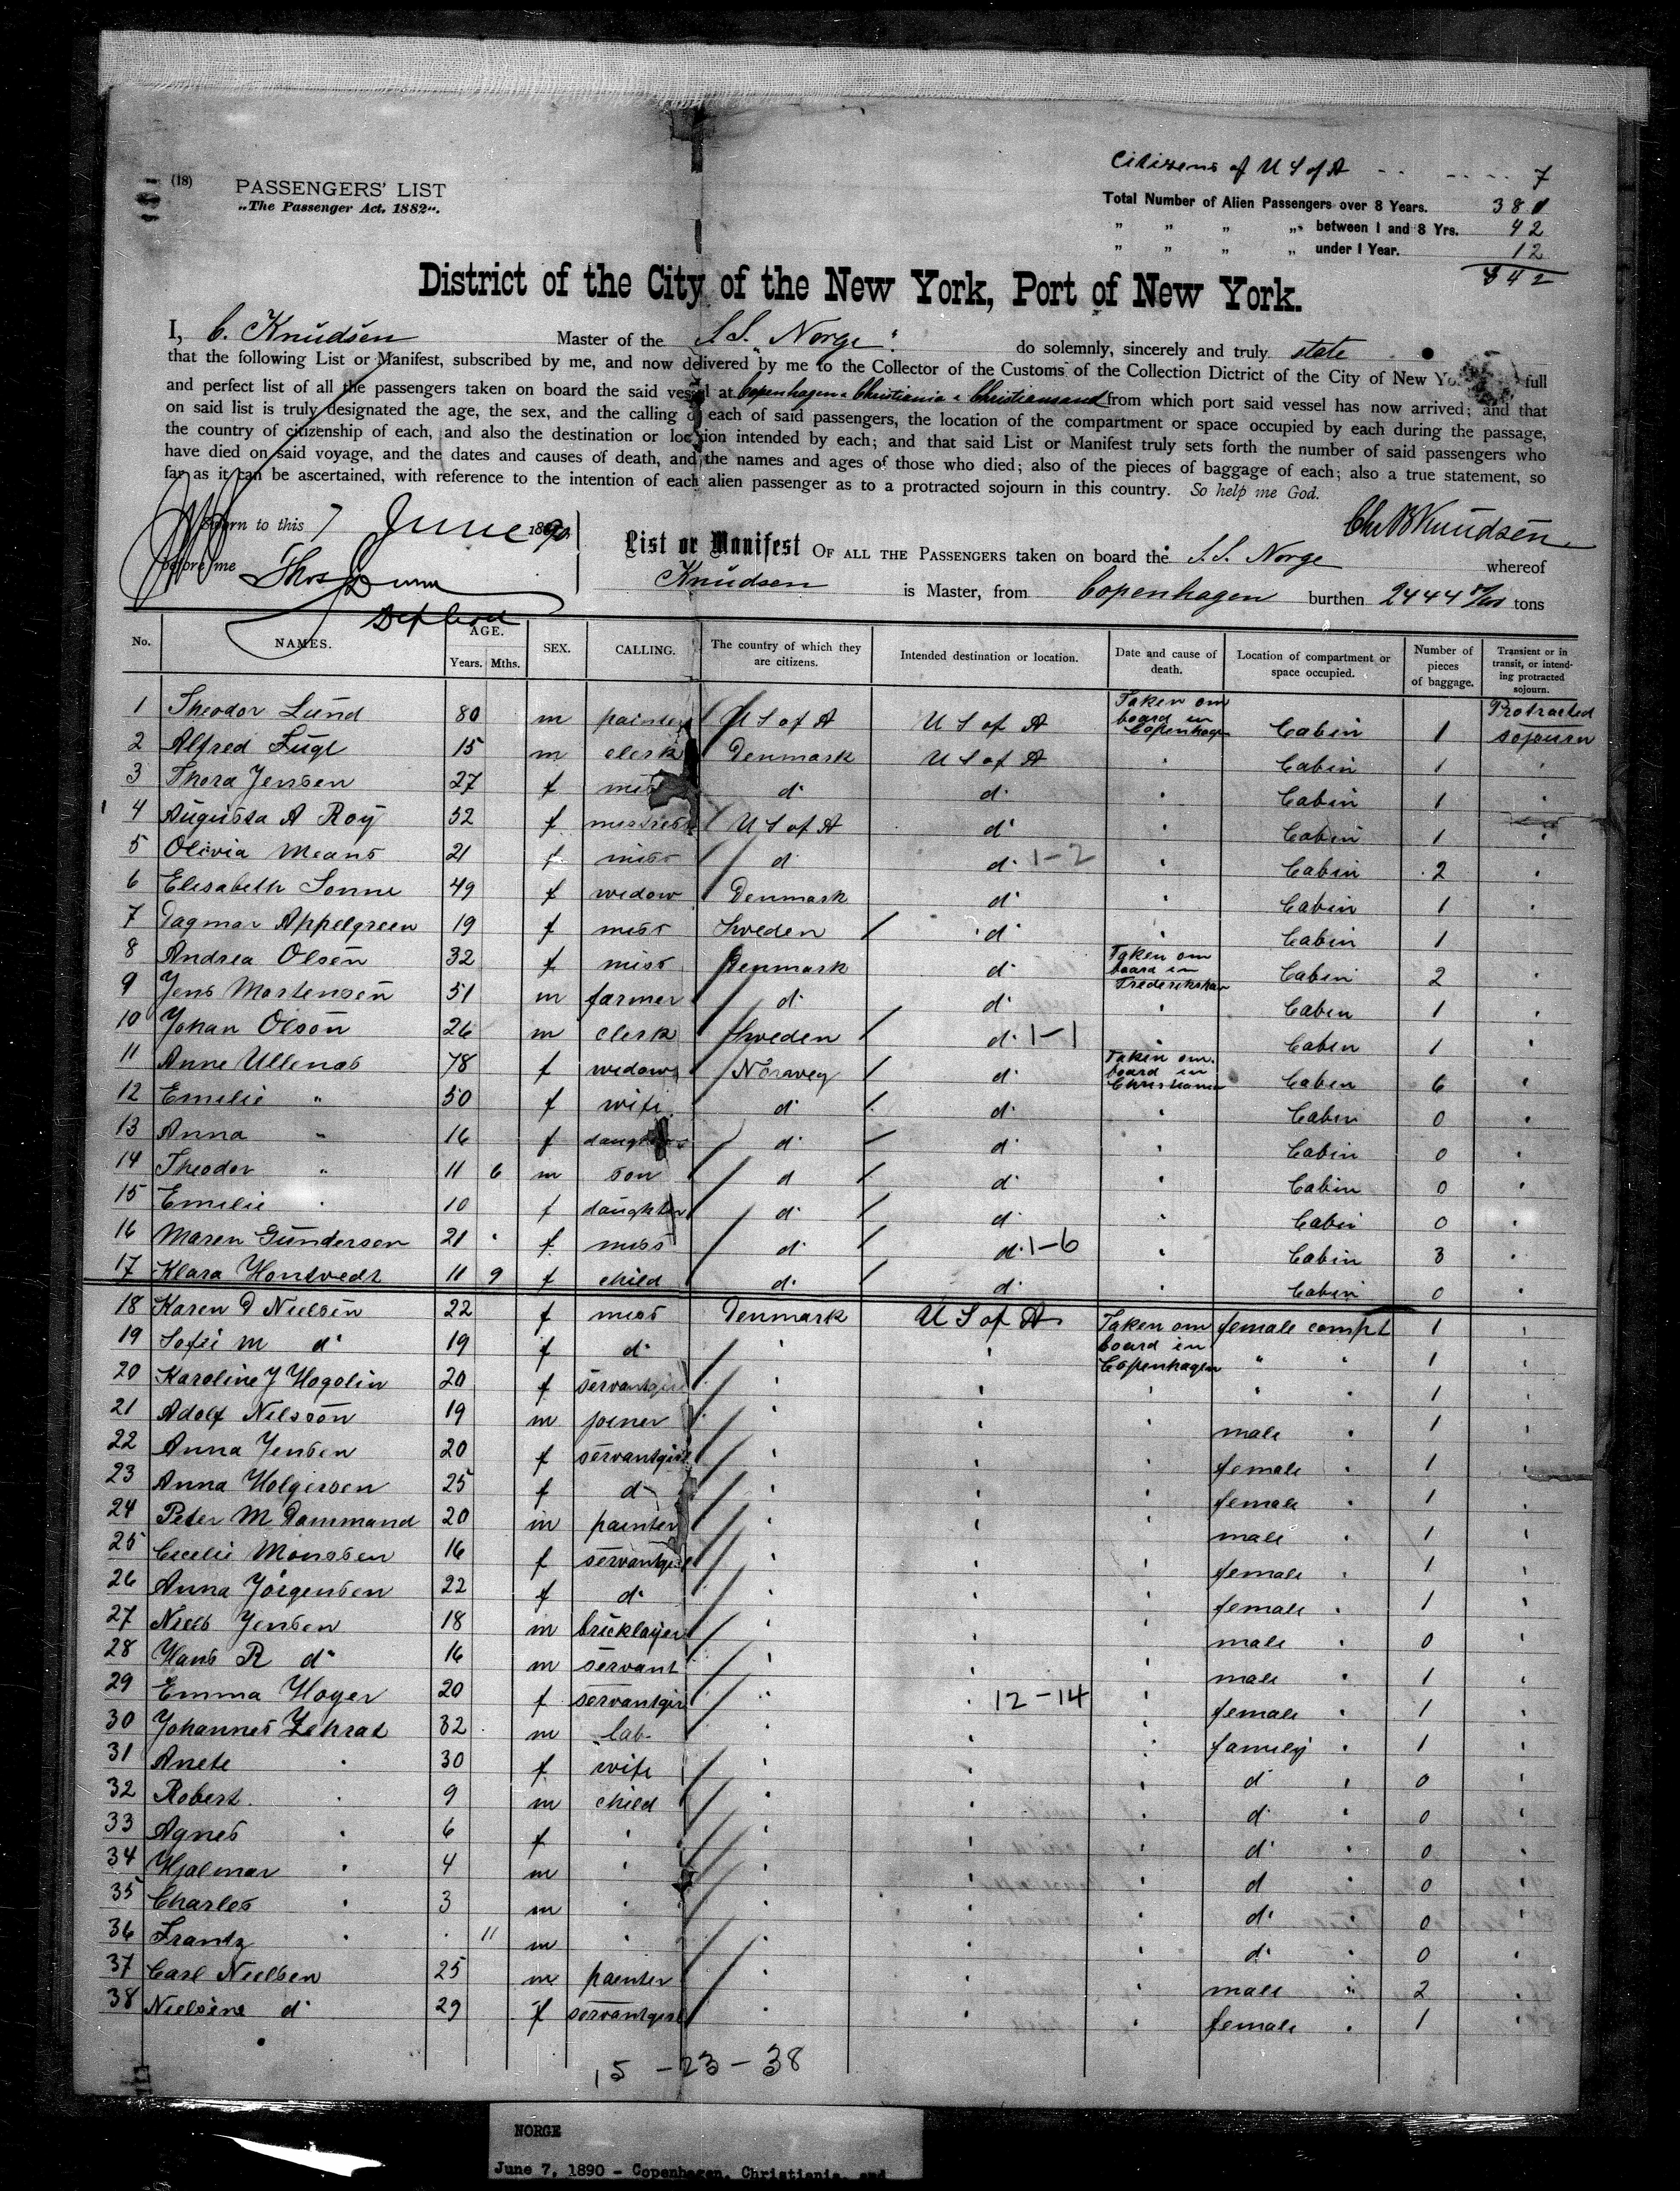 (18)
PASSENGERS' LIST
„The Passenger Act, 1882“.
Citizens of U S of A - - - - - - 7
Total Number of Alien Passengers over 8 Years. 381
„ „ „ „ between 1 and 8 Yrs. 42
„ „ „ „ under 1 Year. 12
442
District of the City of the New York, Port of New York.
I, C. Knudsen Master of the S.S. „Norge“ do solemnly, sincerely and truly state
that the following List or Manifest, subscribed by me, and now delivered by me to the Collector of the Customs of the Collection Dictrict of the City of New Yo full
and perfect list of all the passengers taken on board the said vessel at Copenhagen Christiania & Christiansand from which port said vessel has now arrived; and that
on said list is truly designated the age, the sex, and the calling of each of said passengers, the location of the compartment or space occupied by each during the passage,
the country of citizenship of each, and also the destination or location intended by each; and that said List or Manifest truly sets forth the number of said passengers who
have died on said voyage, and the dates and causes of death, and the names and ages of those who died; also of the pieces of baggage of each; also a true statement, so
far as it can be ascertained, with reference to the intention of each alien passenger as to a protracted sojourn in this country. So help me God.
Chr B Knudsen
Sworn to this 7 June 1890
before me Thos Dunn
Dep Coll
List or Manifest OF ALL THE PASSENGERS taken on board the S.S. Norge whereof
Knudsen is Master, from Copenhagen burthen 2444 tons
No. NAMES. AGE. Years. Mths. SEX. CALLING. The country of which they are citizens. Intended destination or location. Date and cause of death. Location of compartment or space occupied. Number of pieces of baggage. Transient or in transit, or intending protracted sojourn.
1 Theodor Lund 80 m painter U S of A U S of A Taken om board in Copenhagen Cabin 1 Protracted sojourn
2 Alfred Fugl 15 m clerk Denmark U S of A " Cabin 1 "
3 Thora Jensen 27 f miss d° d° " Cabin 1 "
4 Augusta A Roy 52 f mistress U S of A d° " Cabin 1 "
5 Olivia Means 21 f miss d° d° 1-2 " Cabin 2 "
6 Elisabeth Sonne 49 f widow Denmark d° " Cabin 1 "
7 Dagmar Appelgreen 19 f miss Sweden d° " Cabin 1
8 Andrea Olsen 32 f miss Denmark d° Taken om board in Frederikshav Cabin 2 "
9 Jens Mortensen 51 m farmer d° d° " Cabin 1 "
10 Johan Olson 26 m clerk Sweden d° 1-1 " Cabin 1 "
11 Anne Ullenas 78 f widow Norwey d° Taken om board in Christiania Cabin 6 "
12 Emelie " 50 f wife d° d° " Cabin 0 "
13 Anna " 16 f daughter d° d° " Cabin 0 "
14 Theodor " 11 6 m son d° d° " Cabin 0 "
15 Emelie " 10 f daughter d° d° " Cabin 0 "
16 Maren Gundersen 21 " f miss d° d° 1-6 " Cabin 3 "
17 Klara Hontvedt 11 9 f child d° d° " Cabin 0
18 Karen D Nielsen 22 f miss Denmark U S of A Taken om board in Copenhagen female compt 1 "
19 Sofie M d° 19 f d° " " " " 1 "
20 Karoline J Hogolin 20 f servantgirl " " " " " 1 "
21 Adolf Nilsson 19 m joiner " " " male " 1 "
22 Anna Jensen 20 f servantgirl " " " female " 1 "
23 Anna Holgersen 25 f d° " " " female " 1 "
24 Peter M Dammand 20 m painter " " " male " 1 "
25 Cecelie Monssen 16 f servantgirl " " " female " 1 "
26 Anna Jörgensen 22 f d° " " " female " 1 "
27 Niels Jensen 18 m bricklayer " " " male " 0 "
28 Hans R d° 16 m servant " " " male " 1 "
29 Emma Hoyer 20 f servantgirl " " 12-14 " female " 1 "
30 Johannes Zehrat 32 m lab. " " " family " 1 "
31 Anete " 30 f wife " " " d° " 0 "
32 Robert " 9 m child " " " d° " 0 "
33 Agnes " 6 f " " " " d° " 0 "
34 Hjalmar " 4 m " " " " d° " 0 "
35 Charles " 3 m " " " " d° " 0 "
36 Frantz " 11 m " " " " d° " 0 "
37 Carl Nielsen 25 m painter " " " male " 2 "
38 Nielsine d° 29 f servantgirl " " " female " 1 "
15 - 23 - 38
NORGE
June 7, 1890 - Copenhagen, Christiania, and